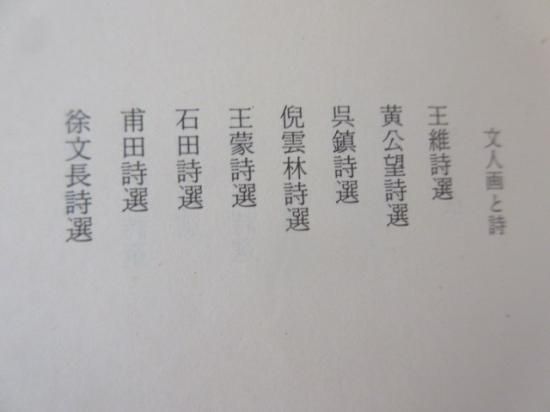 文人画と詩
王維詩選
黄公望詩選
呉鎮詩選
倪雲林詩選
王蒙詩選
石田詩選
甫田詩選
徐文長詩選